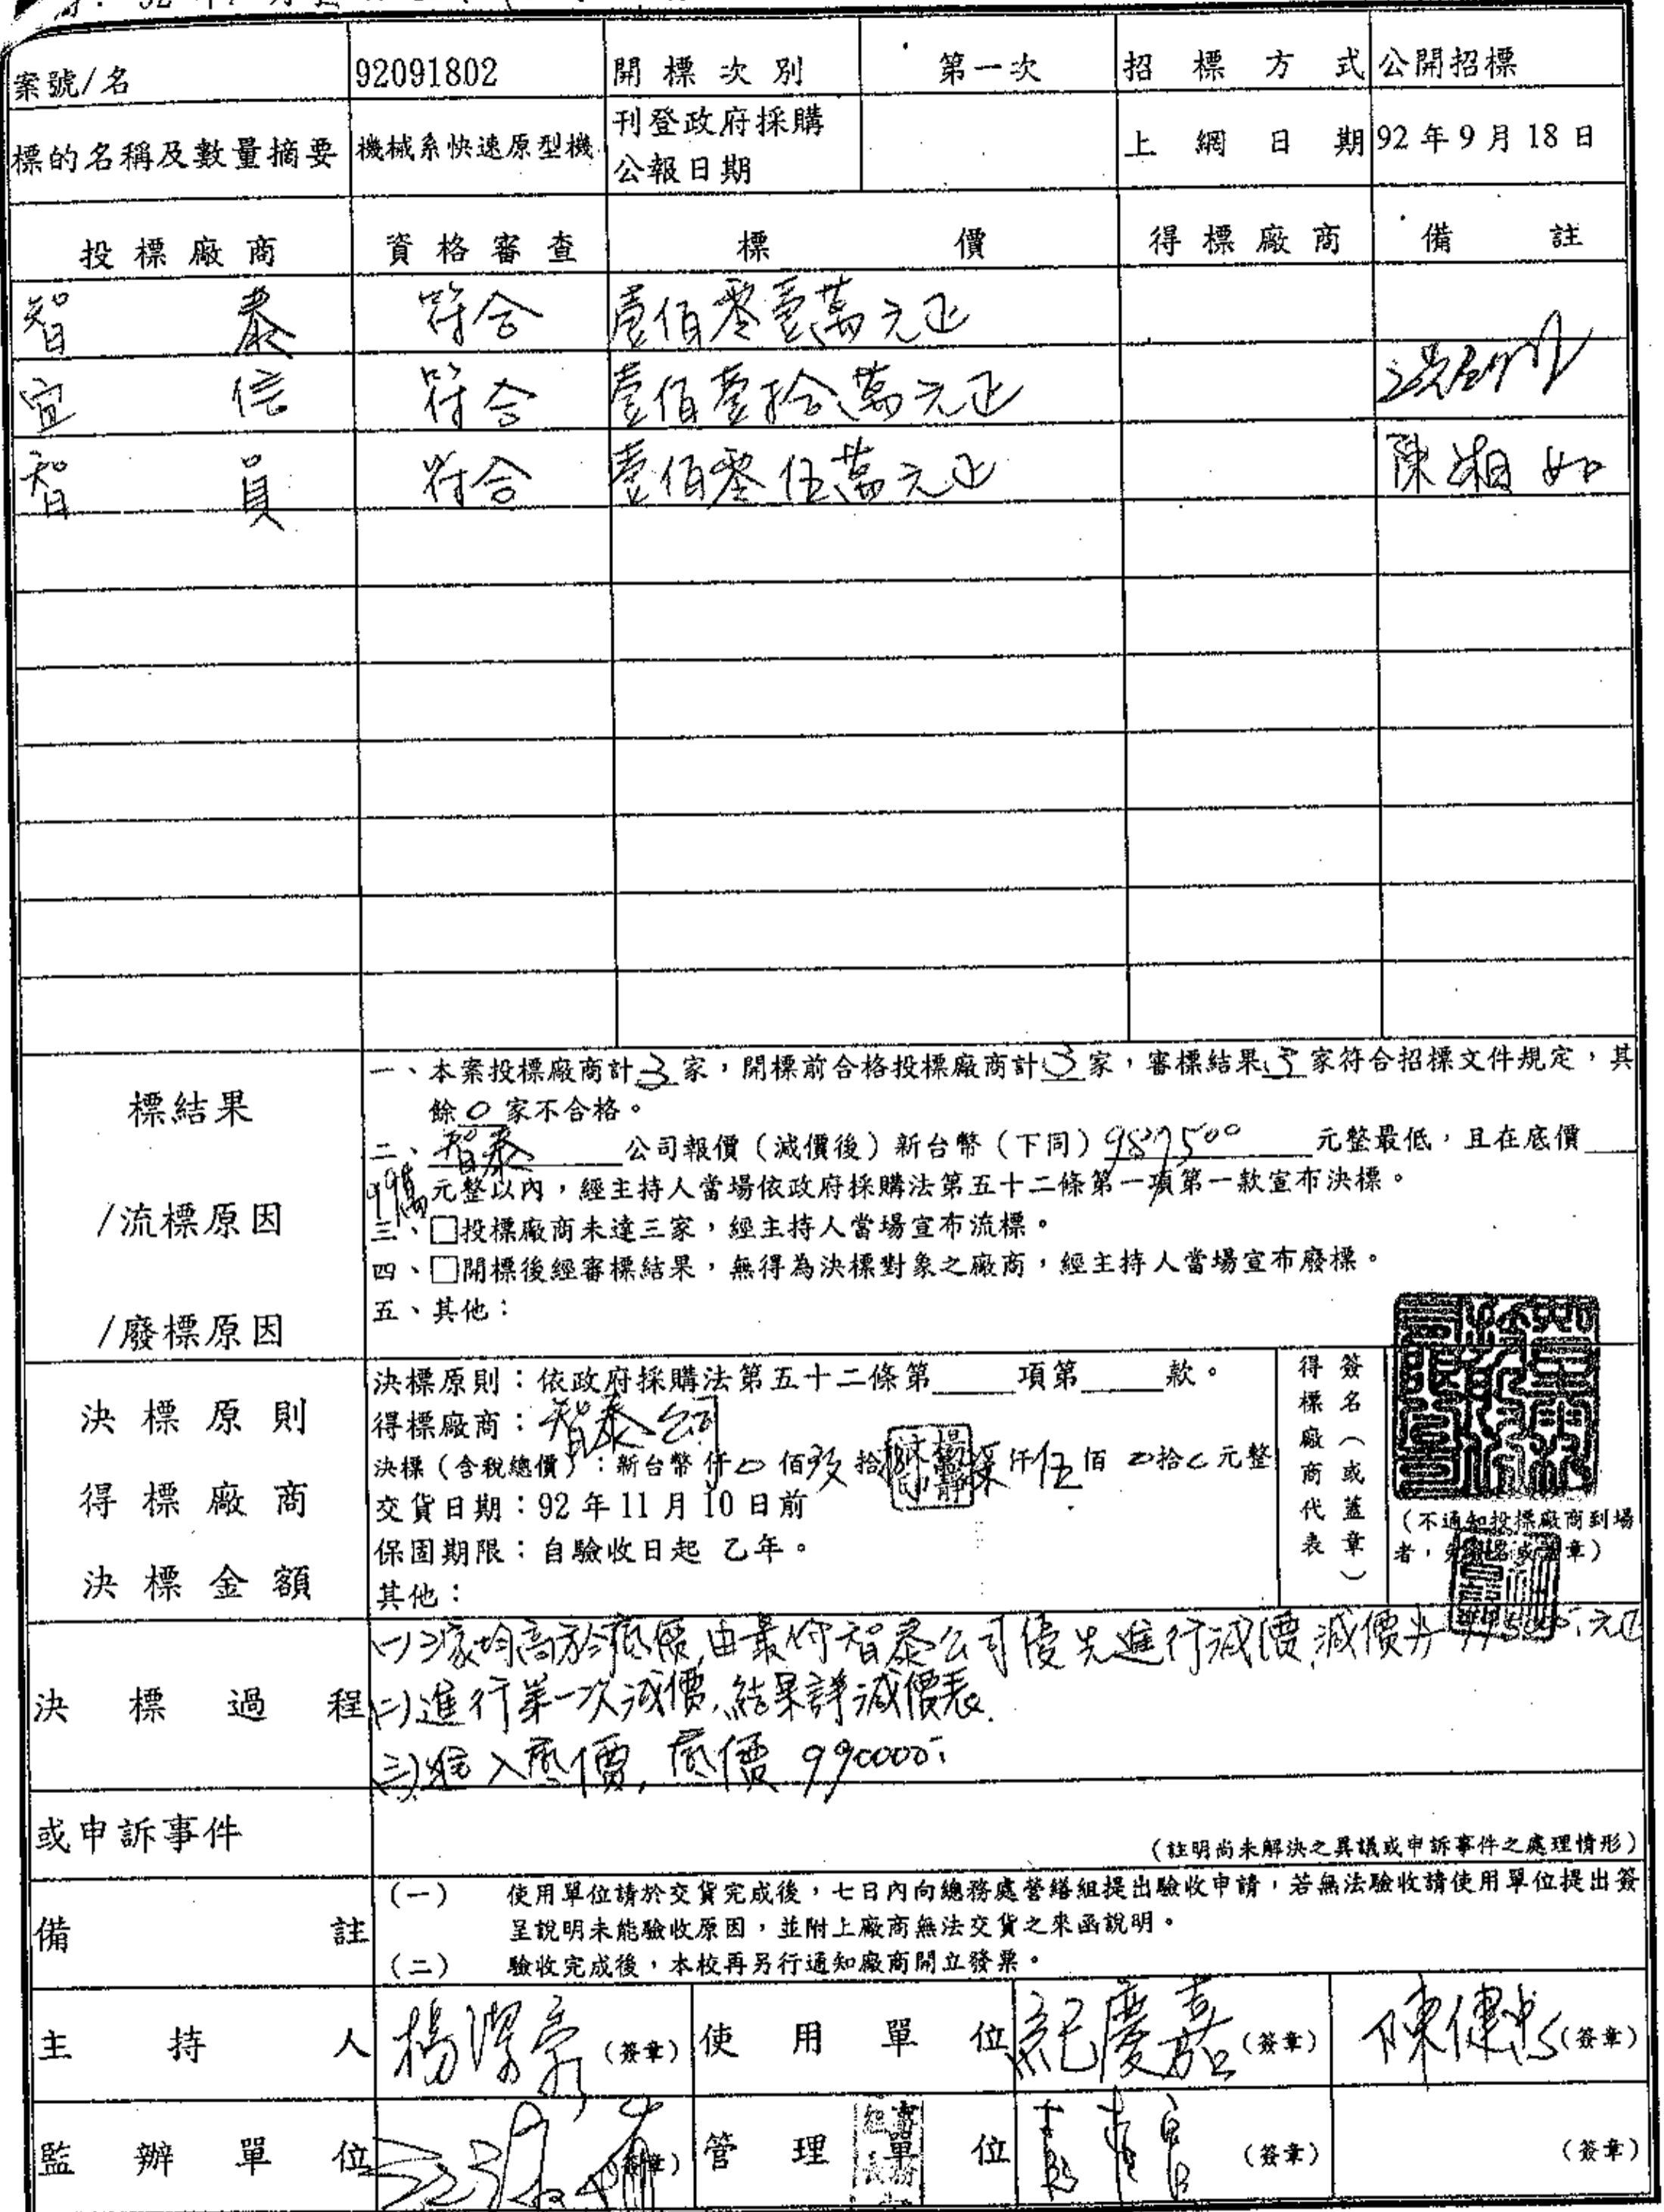 案號/名 92091802 開標次別 第一次 招標方式 公開招標
標的名稱及數量摘要 機械系快速原型機 刊登政府採購公報日期 上網日期 92年9月18日
投標廠商 資格審查 標價 得標廠商 備註
智泰 符合 壹佰零壹萬元正
宜信 符合 壹佰壹拾萬元正
智員 符合 壹佰零伍萬元正 陳湘如
標結果
/流標原因
/廢標原因
一、本案投標廠商計3家,開標前合格投標廠商計3家,審標結果3家符合招標文件規定,其
餘0家不合格。
二、智泰公司報價(減價後)新台幣(下同)987500元整最低,且在底價
99萬元整以內,經主持人當場依政府採購法第五十二條第一項第一款宣布決標。
三、□投標廠商未達三家,經主持人當場宣布流標。
四、□開標後經審標結果,無得為決標對象之廠商,經主持人當場宣布廢標。
五、其他:
決標原則
得標廠商
決標金額
決標原則:依政府採購法第五十二條第_____項第_____款。
得標廠商:智泰公司
決標(含稅總價):新台幣 仟0佰玖拾 仟伍佰0拾0元整
交貨日期:92年11月10日前
保固期限:自驗收日起 乙年。
其他:
得標廠商代表
簽名(或蓋章)
(不通知投標廠商到場
者,
章)
決標過程
(一)3家均高於底價,由最低智泰公司優先進行減價,減價為
(二)進行第一次減價,結果詳減價表.
(三)進入底價,底價990000
或申訴事件
(註明尚未解決之異議或申訴事件之處理情形)
備註
(一) 使用單位請於交貨完成後,七日內向總務處營繕組提出驗收申請,若無法驗收請使用單位提出簽
呈說明未能驗收原因,並附上廠商無法交貨之來函說明。
(二) 驗收完成後,本校再另行通知廠商開立發票。
主持人 (簽章) 使用單位 紀慶嘉(簽章) 陳健忠(簽章)
監辦單位 (簽章) 管理單位 (簽章) (簽章)